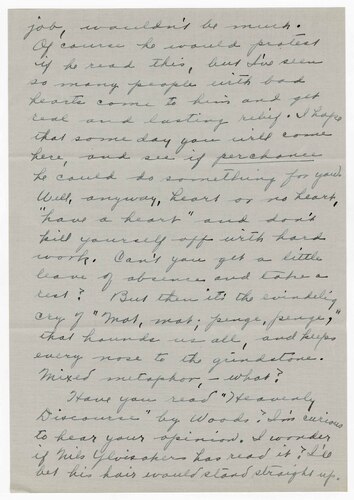 job, wouldn't be much.
Of course he would protest
if he read this, but I've seen
so many people with bad
hearts come to him and get
real and lasting relief. I hope
that some day you will come
here, and see if perchance
he could do something for you.
Well, anyway, heart or no heart,
"have a heart" and don't
kill yourself off with hard
work. Can't you get a little
leave of absence and take a
rest? But then it's the
cry of "Mat, mat; penge, penge,"
that hounds us all, and keeps
every nose to the grindstone.
Mixed metaphor, - what?
Have you read "Heavenly
Discourse" by Woods? I'm curious
to hear your opinion. I wonder
if Nils Ylvisaker has read it? I'll
bet his hair would stand straight up.